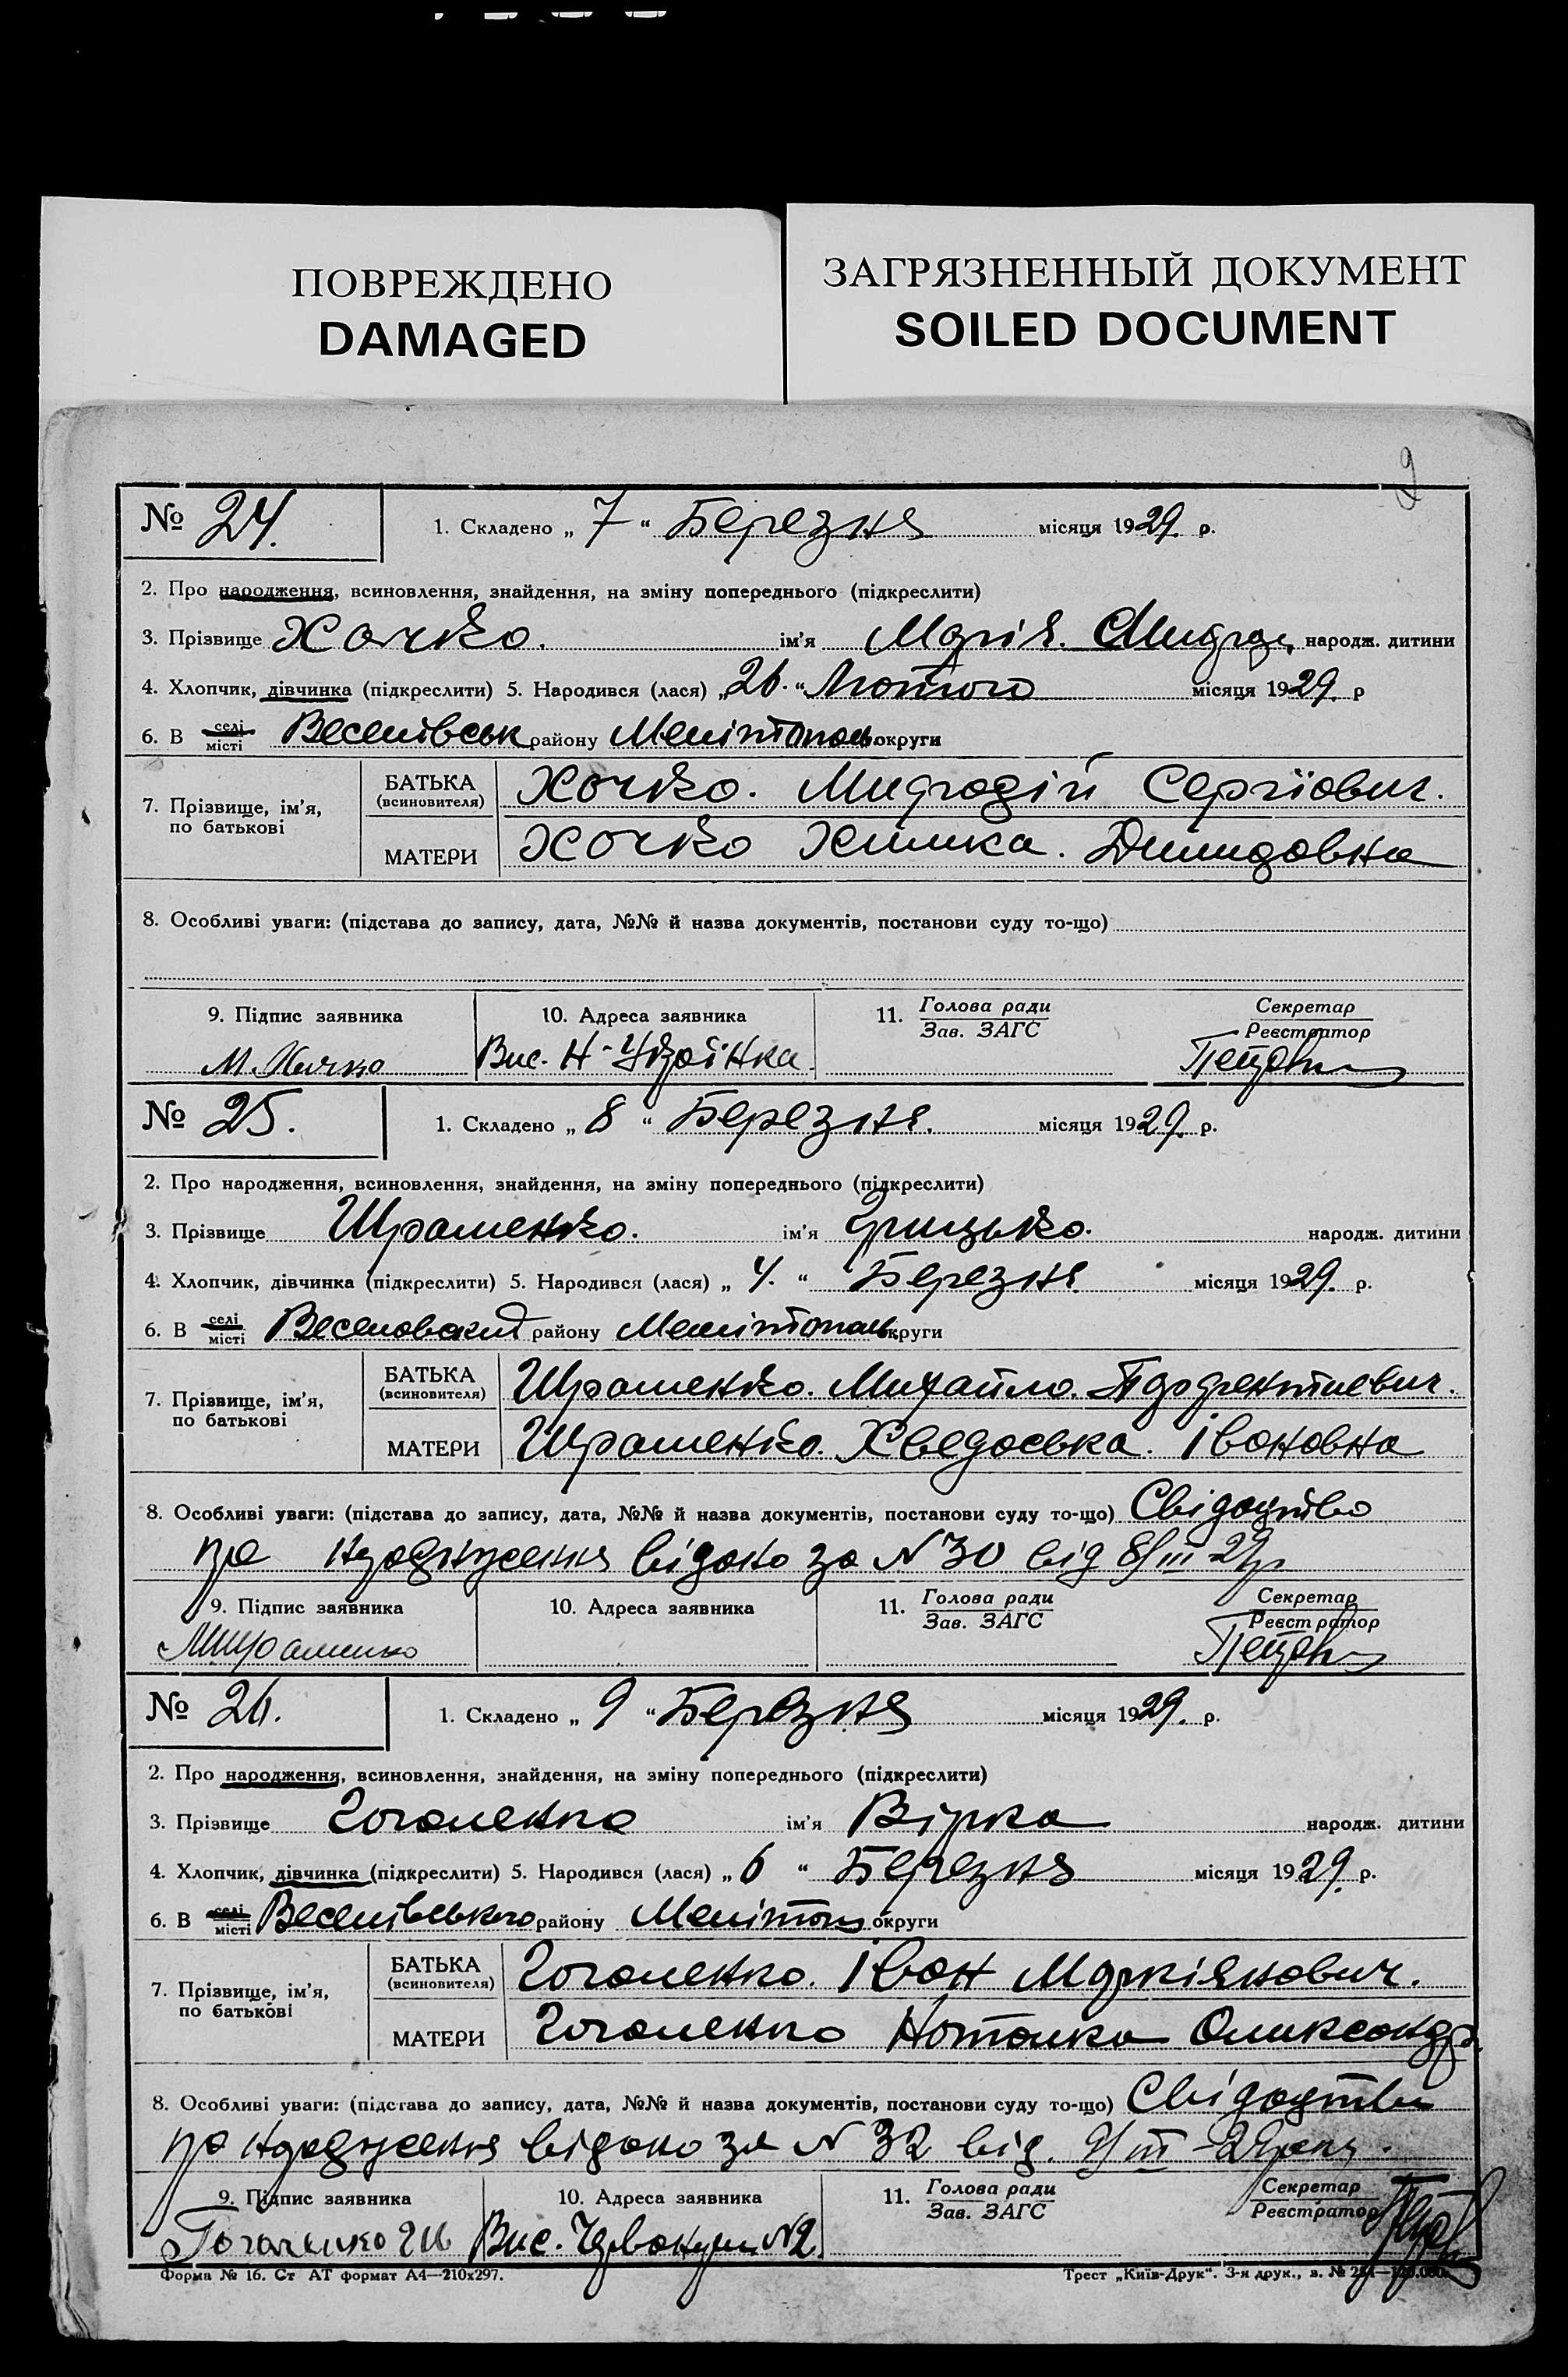 ПОВРЕЖДЕНО
DAMAGED
ЗАГРЯЗНЕННЫЙ ДОКУМЕНТ
SOILED DOCUMENT
9
№ 24. 1. Складено „ 7 “ Березня місяця 1929. р.
2. Про народження, всиновлення, знайдення, на зміну попереднього (підкреслити)
3. Прізвище Хочко. ім’я Марія. народж. дитини
4. Хлопчик, дівчинка (підкреслити) 5. Народився (лася) „ 26. “ Лютого місяця 1929. р
6. В селі місті Веселівськ району Мелітополь округи
7. Прізвище, ім’я, по батькові
БАТЬКА (всиновителя) Хочко. Сергійович.
МАТЕРИ Хочко Химка. Демидовна
8. Особливі уваги: (підстава до запису, дата, №№ й назва документів, постанови суду то-що)
9. Підпис заявника 10. Адреса заявника 11. Голова ради Зав. ЗАГС Секретар Реєстратор
М. Хочко Вис. Н-Українка.
№ 25. 1. Складено „ 8 “ Березня. місяця 1929. р.
2. Про народження, всиновлення, знайдення, на зміну попереднього (підкреслити)
3. Прізвище Ширашенко. ім’я Грицько. народж. дитини
4. Хлопчик, дівчинка (підкреслити) 5. Народився (лася) „ 4. “ Березня місяця 1929. р.
6. В селі місті Веселовский району Мелітополь округи
7. Прізвище, ім’я, по батькові
БАТЬКА (всиновителя) Михайло.
МАТЕРИ Хведоська. Івановна
8. Особливі уваги: (підстава до запису, дата, №№ й назва документів, постанови суду то-що) Свідоцтво
про народження відано за N 30 від 8/III 29р
9. Підпис заявника 10. Адреса заявника 11. Голова ради Зав. ЗАГС Секретар Реєстратор
№ 26. 1. Складено „ 9 “ Березня місяця 1929. р.
2. Про народження, всиновлення, знайдення, на зміну попереднього (підкреслити)
3. Прізвище Гоголенко ім’я Вірка народж. дитини
4. Хлопчик, дівчинка (підкреслити) 5. Народився (лася) „ 6 “ Березня місяця 1929. р.
6. В селі місті Веселівського району Мелітоп округи
7. Прізвище, ім’я, по батькові
БАТЬКА (всиновителя) Гоголенко. Іван Маркіянович.
МАТЕРИ Гоголенко Наталка Олександр.
8. Особливі уваги: (підстава до запису, дата, №№ й назва документів, постанови суду то-що) Свідоцтво
про народження відано за N 32 від. 9/III-29 року.
9. Підпис заявника 10. Адреса заявника 11. Голова ради Зав. ЗАГС Секретар Реєстратор
Гоголенко Вис. N2
Форма № 16. Ст АТ формат А4—210х297. Трест „Київ-Друк“. 3-я друк., з. №